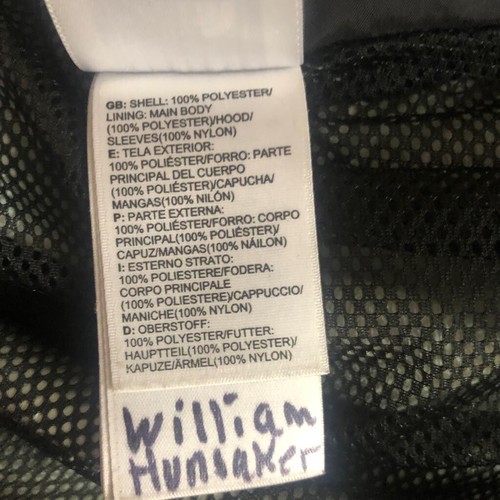 GB: SHELL: 100% POLYESTER/
LINING: MAIN BODY
(100% POLYESTER)/HOOD/
SLEEVES(100% NYLON)
E: TELA EXTERIOR:
100% POLIÉSTER/FORRO: PARTE
PRINCIPAL DEL CUERPO
(100% POLIÉSTER)/CAPUCHA/
MANGAS(100% NILÓN)
P: PARTE EXTERNA:
100% POLIÉSTER/FORRO: CORPO
PRINCIPAL(100% POLIÉSTER)/
CAPUZ/MANGAS(100% NÁILON)
I: ESTERNO STRATO:
100% POLIESTERE/FODERA:
CORPO PRINCIPALE
(100% POLIESTERE)/CAPPUCCIO/
MANICHE(100% NYLON)
D: OBERSTOFF:
100% POLYESTER/FUTTER:
HAUPTTEIL(100% POLYESTER)/
KAPUZE/ÄRMEL(100% NYLON)
William
Hunsaker